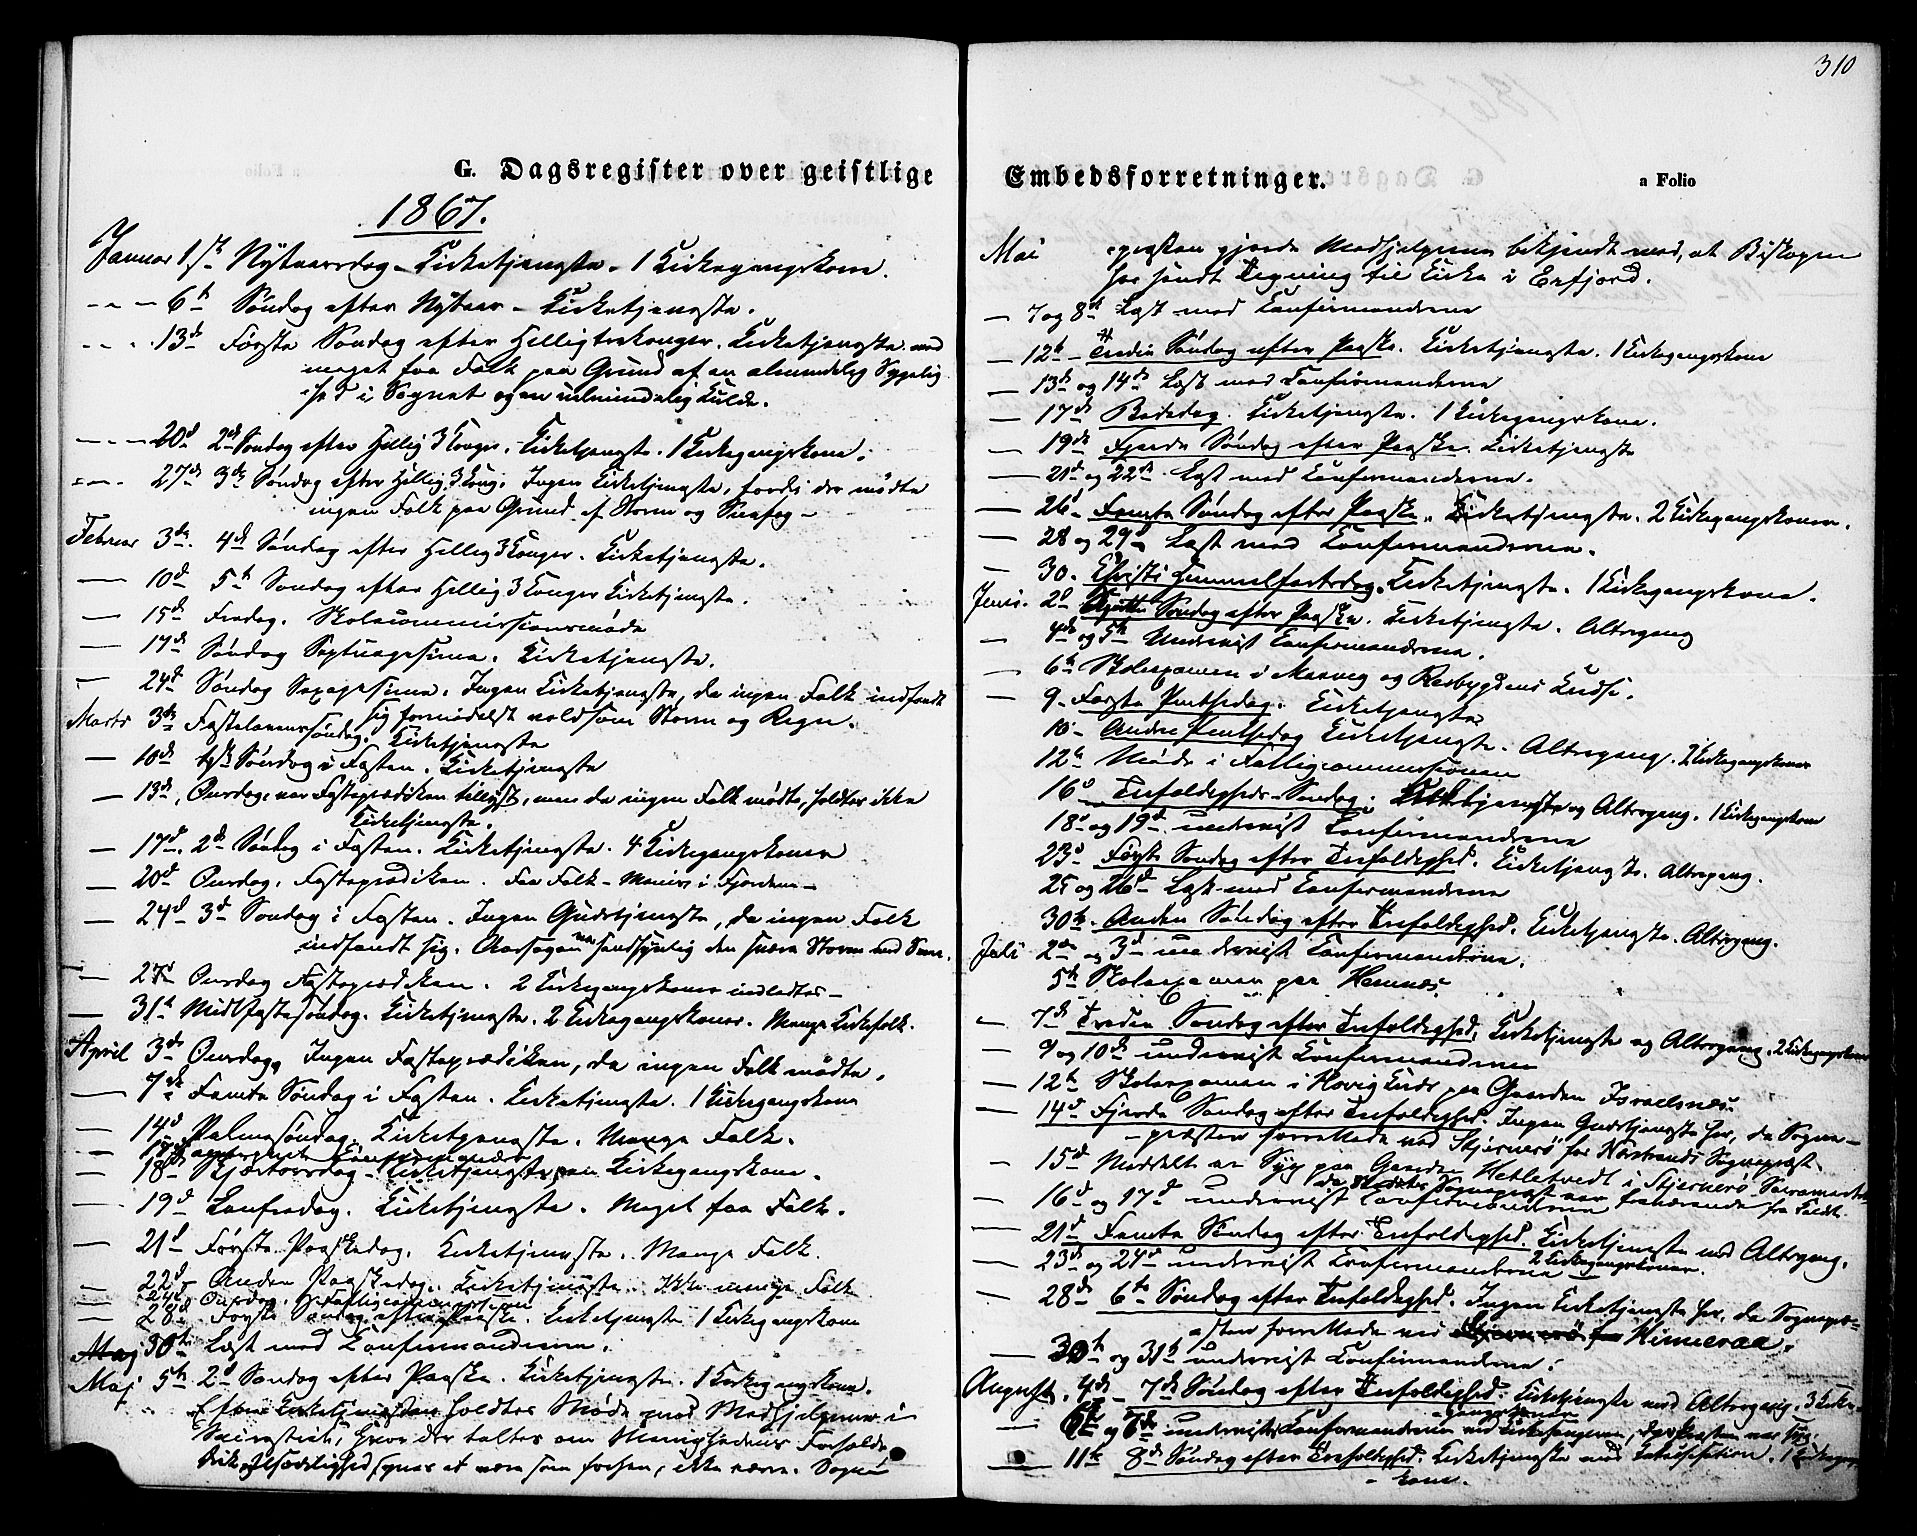 310
G. Dagsregister over geistlige
1867.
Januar 1ste Nytaarsdag - Kirketjeneste - 1 Kirkegangskone.
- - - 6te Søndag efter Nytaar - Kirketjeneste.
- - - 13de Første Søndag efter Helligtrekonger. Kirketjeneste med
meget faa Folk paa Grund af en almindelig Sygelig
hed i Sognet og en ualmindelig Kulde.
- - - 20d 2den Søndag efter Hellig 3 Konger. Kirketjeneste. 1 Kirkegangskone.
- - - 27de 3die Søndag efter Hellig 3 Kong. Ingen Kirketjeneste, fordi der mødte
ingen Folk paa Grund af Storm og Snefog -
Februar 3de. 4de Søndag efter Hellig 3 Konger. Kirketjeneste.
— 10d 5te Søndag efter Hellig 3 Konger Kirketjeneste.
— 15d Fredag. Skolecommissionsmøde
— 17de Søndag Septuagesima. Kirketjeneste.
— 24d Søndag Sexagesima. Ingen Kirketjeneste, da ingen Folk indfandt
sig formedelst voldsom Storm og Regn.
Marts 3de Fastelavnssøndag. Kirketjeneste
— 10de 1ste Søndag i Fasten. Kirketjeneste
— 13de, Onsdag, var Fasteprædiken tillyst, men da ingen Folk mødte, holdtes ikke
Kirketjeneste.
— 17de. 2den Søndag i Fasten. Kirketjeneste. 4 Kirkegangskoner
— 20d Onsdag. Fasteprædiken. Faa Folk - i Fjordene -
— 24d 3d Søndag i Fasten. Ingen Gudstjeneste, da ingen Folk
indfandt sig. Aarsagen var sandsynlig den svære Storm med Snee.
— 27d Onsdag Fasteprædiken. 2 Kirkegangskoner indledtes -
— 31te Midfastesøndag. Kirketjeneste. 2 Kirkegangskoner. Mange Kirkefolk.
April 3de Onsdag, Ingen Fasteprædiken, da ingen Folk mødte.
— 7de Femte Søndag i Fasten. Kirketjeneste. 1 Kirkegangskone
— 14d Palmesøndag. Kirketjeneste. Mange Folk.
— 18de Skjærtorsdag - Kirketjeneste, en Kirkegangskone.
— 19d Lanfredag. Kirketjeneste. Meget faa Folk.
— 21d Første Paaskedag. Kirketjeneste. Mange Folk.
— 22d Anden Paaskedag. Kirketjeneste. Ikke mange Folk
— 24d Onsdag. Fattigcommission
— 28d Første Søndag efter Paaske. Kirketjeneste 1 Kirkegangskone
30te Læst med Konfirmanderne.
Maj 5te 2d Søndag efter Paaske. Kirketjeneste. 1 Kirkegangskone.
Efter Kirketjenesten holdtes Møde med Medhjelperne i
Sacristiet, hvor der taltes om Menighedens Forholde
synes at være som forhen, ikke værre. Sogne
Embedsforretninger.
a Folio
Mai -præsten gjorde Medhjelperne bekjendt med, at Biskopen
har sendt Tegning til Kirke i Erfjord.
— 7 og 8de Læst med Konfirmanderne
— 12te - Tredie Søndag efter Paaske. Kirketjeneste. 1 Kirkegangskone
— 13de og 14de Læst med Konfirmanderne
— 17de Bededag. Kirketjeneste. 1 Kirkegangskone.
— 19de Fjerde Søndag efter Paaske. Kirketjeneste
— 21d og 22de Læst med Konfirmanderne.
— 26d - Femte Søndag efter Paaske. Kirketjeneste. 2 Kirkegangskoner.
— 28 og 29d Læst med Konfirmanderne.
— 30. Christi Himmelfartsdag. Kirketjeneste. 1 Kirkegangskone.
Juni. 2d Sjette Søndag efter Paaske. Kirketjeneste. Altergang
— 4de og 5te Undervist Konfirmanderne.
— 6te Skoleexamen i Marvig og Kreds.
— 9. Første Pintsedag. Kirketjeneste
10. - Anden Pintsedag Kirketjeneste. Altergang. 2 Kirkegangskoner
12te Møde i Fattigcommissionen
16d Trefoldigheds-Søndag. Kirketjeneste og Altergang. 1 Kirkegangskone
18d og 19d undervist Konfirmanderne
23d Første Søndag efter Trefoldighed. Kirketjeneste. Altergang.
25 og 26d Læst med Konfirmanderne
30te. Anden Søndag efter Trefoldighed. Kirketjeneste. Altergang.
Juli 2den og 3d undervist Konfirmanderne.
5te Skoleexamen paa Hemnes.
— 7de Tredie Søndag efter Trefoldighed. Kirketjeneste og Altergang. 2 Kirkegangskoner
— 9 og 10de undervist Konfirmanderne
— 12te Skoleexamen i Hovig Kreds paa Gaarden Israelsnes.
— 14d Fjerde Søndag efter Trefoldighed. Ingen Gudstjeneste her, da Sogne-
-præsten forrettede ved Stjernerø for Nærstrands Sognepræst
— 15d Meddelt en Syg paa Gaarden Hetletvedt i Stjernerø Sacramentet
da Stedets Sognepræst var fraværende
— 16d og 17d undervist Konfirmanderne
— 21d Femte Søndag efter Trefoldighed. Kirketjeneste med Altergang.
— 23de og 24d undervist Konfirmanderne 2 Kirkegangskoner.
— 28de 6te Søndag efter Trefoldighed. Ingen Kirketjeneste her, da Sognepræ-
-sten forrettede ved Hinneraa.
— 30te og 31te undervist Konfirmanderne.
August. 4de - 7de Søndag efter Trefoldighed. Kirketjeneste med Altergang. 3 Kirke-
-gangskoner
— 6te og 7de undervistes Konfirmanderne ved Kirkesangeren, da Præsten var syg.
— 11te 8de Søndag efter Trefoldighed. Kirketjeneste med Katechisation. 1 Kirkegangs-
- kone.